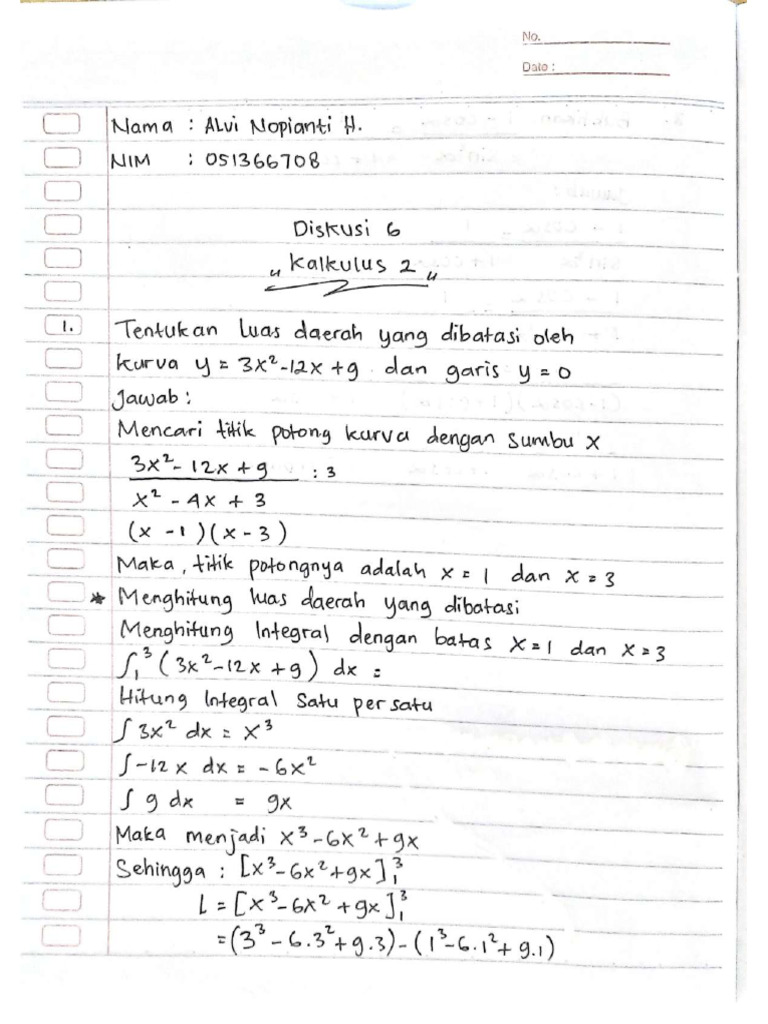 No.
Date :
Nama : Alvi Nopianti H.
NIM : 051366708
Diskusi 6
„ Kalkulus 2 „
1. Tentukan luas daerah yang dibatasi oleh
kurva y = 3x²-12x+9 dan garis y = 0
Jawab :
Mencari titik potong kurva dengan sumbu x
3x² - 12x + 9 : 3
x² - 4x + 3
(x - 1)(x - 3)
Maka, titik potongnya adalah x = 1 dan x = 3
* Menghitung luas daerah yang dibatasi
Menghitung Integral dengan batas x=1 dan x=3
∫₁³ (3x²-12x+9) dx =
Hitung Integral Satu per satu
∫ 3x² dx = x³
∫ -12x dx = -6x²
∫ 9 dx = 9x
Maka menjadi x³-6x²+9x
Sehingga : [x³-6x²+9x]₁³
L = [x³-6x²+9x]₁³
= (3³ - 6.3²+9.3) - (1³-6.1²+9.1)